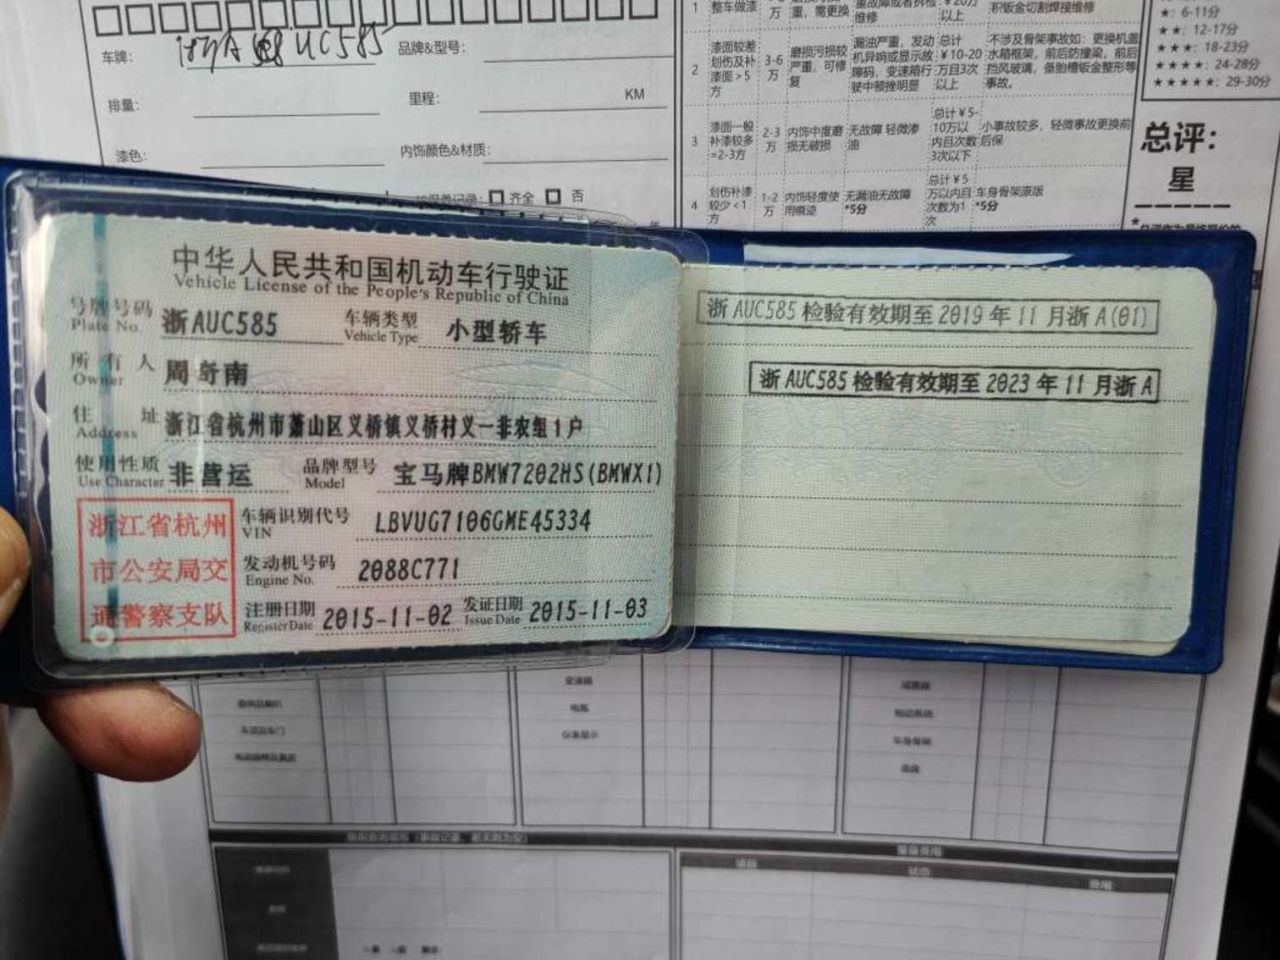 车牌: 浙A UC585 品牌&型号:
排量: 里程: KM
漆色: 内饰颜色&材质:
齐全 否
1 整车做漆 万 重,需更换 维修 以上 积钣金切割焊接维修
2 漆面较差划伤及补漆面>5方 3-6万 磨损污损较严重,可修复 漏油严重,发动机异响或显示故障码,变速箱行驶中顿挫明显 总计¥10-20万目3次以上 不涉及骨架事故如:更换机盖水箱框架,前后防撞梁,前后挡风玻璃,备胎槽钣金整形等事故。
3 漆面一般补漆较多=2-3方 2-3万 内饰中度磨损无破损 无故障 轻微渗油 总计¥5-10万以内且次数3次以下 小事故较多,轻微事故更换前后保
4 划伤补漆较少<1方 1-2万 内饰轻度使用痕迹 无漏油无故障 *5分 总计¥5万以内且次数为1次 车身骨架原版 *5分
★: 6-11分
★★: 12-17分
★★★: 18-23分
★★★★: 24-28分
★★★★★: 29-30分
总评:
星
中华人民共和国机动车行驶证
Vehicle License of the People's Republic of China
号牌号码 浙AUC585 车辆类型 小型轿车
Plate No. Vehicle Type
所有人 周 南
Owner
住址 浙江省杭州市萧山区义桥镇义桥村义一非农组1户
Address
使用性质 非营运 品牌型号 宝马牌BMW7202HS(BMWX1)
Use Character Model
浙江省杭州
市公安局交
通警察支队
车辆识别代号 LBVUG7106GME45334
VIN
发动机号码 2088C771
Engine No.
注册日期 2015-11-02 发证日期 2015-11-03
Register Date Issue Date
浙AUC585检验有效期至2019年11月浙A(01)
浙AUC585检验有效期至2023年11月浙A
变速箱
电瓶
仪表显示